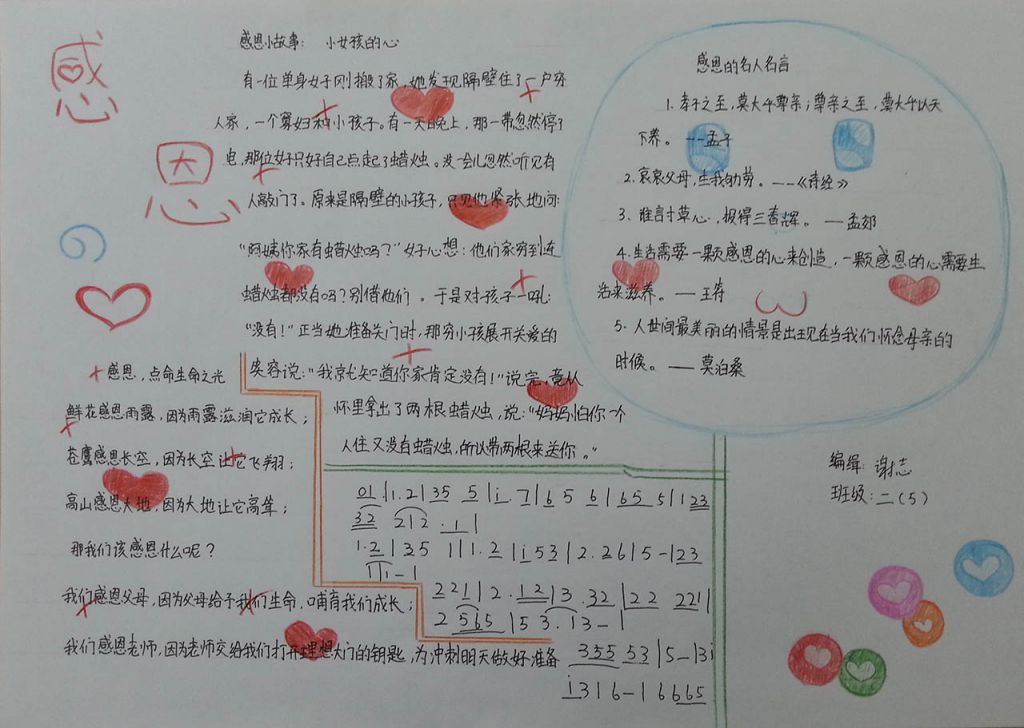 感
恩
感恩小故事： 小女孩的心
有一位单身女子刚搬了家，她发现隔壁住了一户穷
人家，一个寡妇和小孩子。有一天晚上，那一带忽然停了
电，那位女子只好自己点起了蜡烛。没一会儿忽然听见有
人敲门了。原来是隔壁的小孩子，只见他紧张地问：
“阿姨你家有蜡烛吗？”女子心想：他们家穷到连
蜡烛都没有吗？别借他们。于是对孩子一吼：
“没有！”正当她准备关门时，那穷小孩展开关爱的
笑容说：“我就知道你家肯定没有！”说完，竟从
怀里拿出了两根蜡烛，说：“妈妈怕你一个
人住又没有蜡烛，所以带两根来送你。”
感恩，点命生命之光
鲜花感恩雨露，因为雨露滋润它成长；
苍鹰感恩长空，因为长空让它飞翔；
高山感恩大地，因为大地让它高耸；
那我们该感恩什么呢？
我们感恩父母，因为父母给予我们生命，哺育我们成长；
我们感恩老师，因为老师交给我们打开理想大门的钥匙，为冲刺明天做好准备
感恩的名人名言
1. 孝子之至，莫大乎尊亲；尊亲之至，莫大乎以天
下养。 ---孟子
2. 哀哀父母，生我劬劳。---《诗经》
3、谁言寸草心，报得三春晖。 —孟郊
4. 生活需要一颗感恩的心来创造，一颗感恩的心需要生
活来滋养。—王符
5、人世间最美丽的情景是出现在当我们怀念母亲的
时候。 — 莫泊桑
01|1.2|35 5|i.7|65 6|65 5|123
32 212 .1|
1.2|35 1|1.2|i53|2.26|5-|23
11i-1
221|2.12|3.32|22 221|
2 565|53.13-|
355 53|5-|3i
i316-16665
编缉：谢志
班级：二（5）